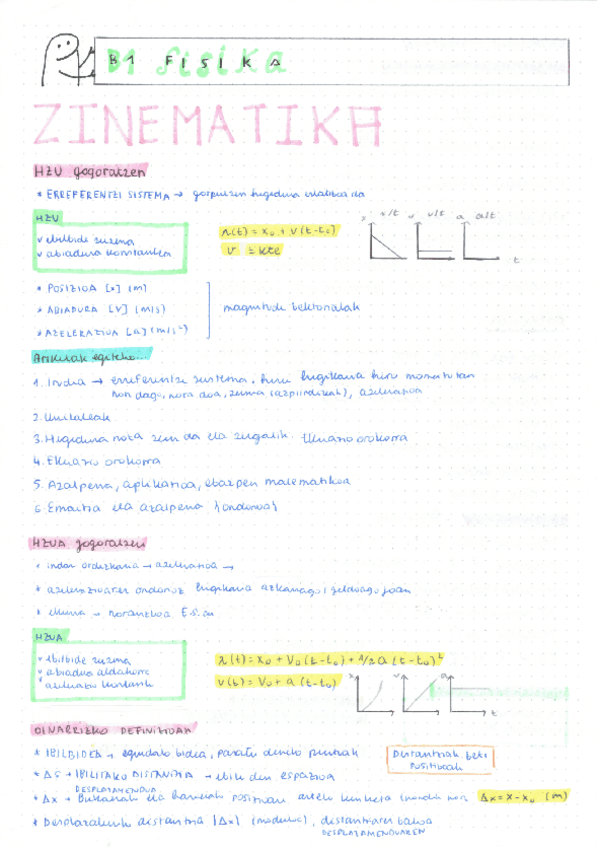 B1 FISIKA
ZINEMATIKA
HZU gogoratzen
* ERREFERENTZI SISTEMA → gorputzen higidura erlatiboa da
HZU
✓ ibilbide zuzena
✓ abiadura konstantea
x(t) = x₀ + v(t-t₀)
v = kte
x x/t v v/t a a/t t
* POSIZIOA [x] (m)
* ABIADURA [v] (m/s)
* AZELERAZIOA [a] (m/s²)
magnitude bektorialak
Ariketak egiteko...
1. Irudia → erreferentzi sistema,
non dago, nora doa, azelerazioa
2. Unitateak
3. Higidura mota zein da eta zergatik. Ekuazio orokorra
4. Ekuazio orokorra
5. Azalpena, aplikazioa, ebazpen matematikoa
6. Emaitza eta azalpena (ondorioa)
HZUA gogoratzen
* indar → azelerazioa →
* azelerazioaren ondorioz higikaria azkarago/geldoago joan
* → norantzkoa
HZUA
* ibilbide zuzena
* abiadura aldakorra
* azelerazio konstante
x(t) = x₀ + v₀(t-t₀) + 1/2 a (t-t₀)²
v(t) = v₀ + a (t-t₀)
x v a t
OINARRIZKO DEFINIZIOAK
* IBILBIDEA → egindako bidea, pasatu direneko puntuak
Distantziak beti positiboak
* ΔS → IBILITAKO DISTANTZIA → ibili den espazioa
DESPLAZAMENDUA
* Δx → Bukaerako eta hasierako posizioen arteko kenketa
Δx = x - x₀ (m)
* Desplazatutako distantzia |Δx| (modulua), distantziaren balioa
DESPLAZAMENDUAREN